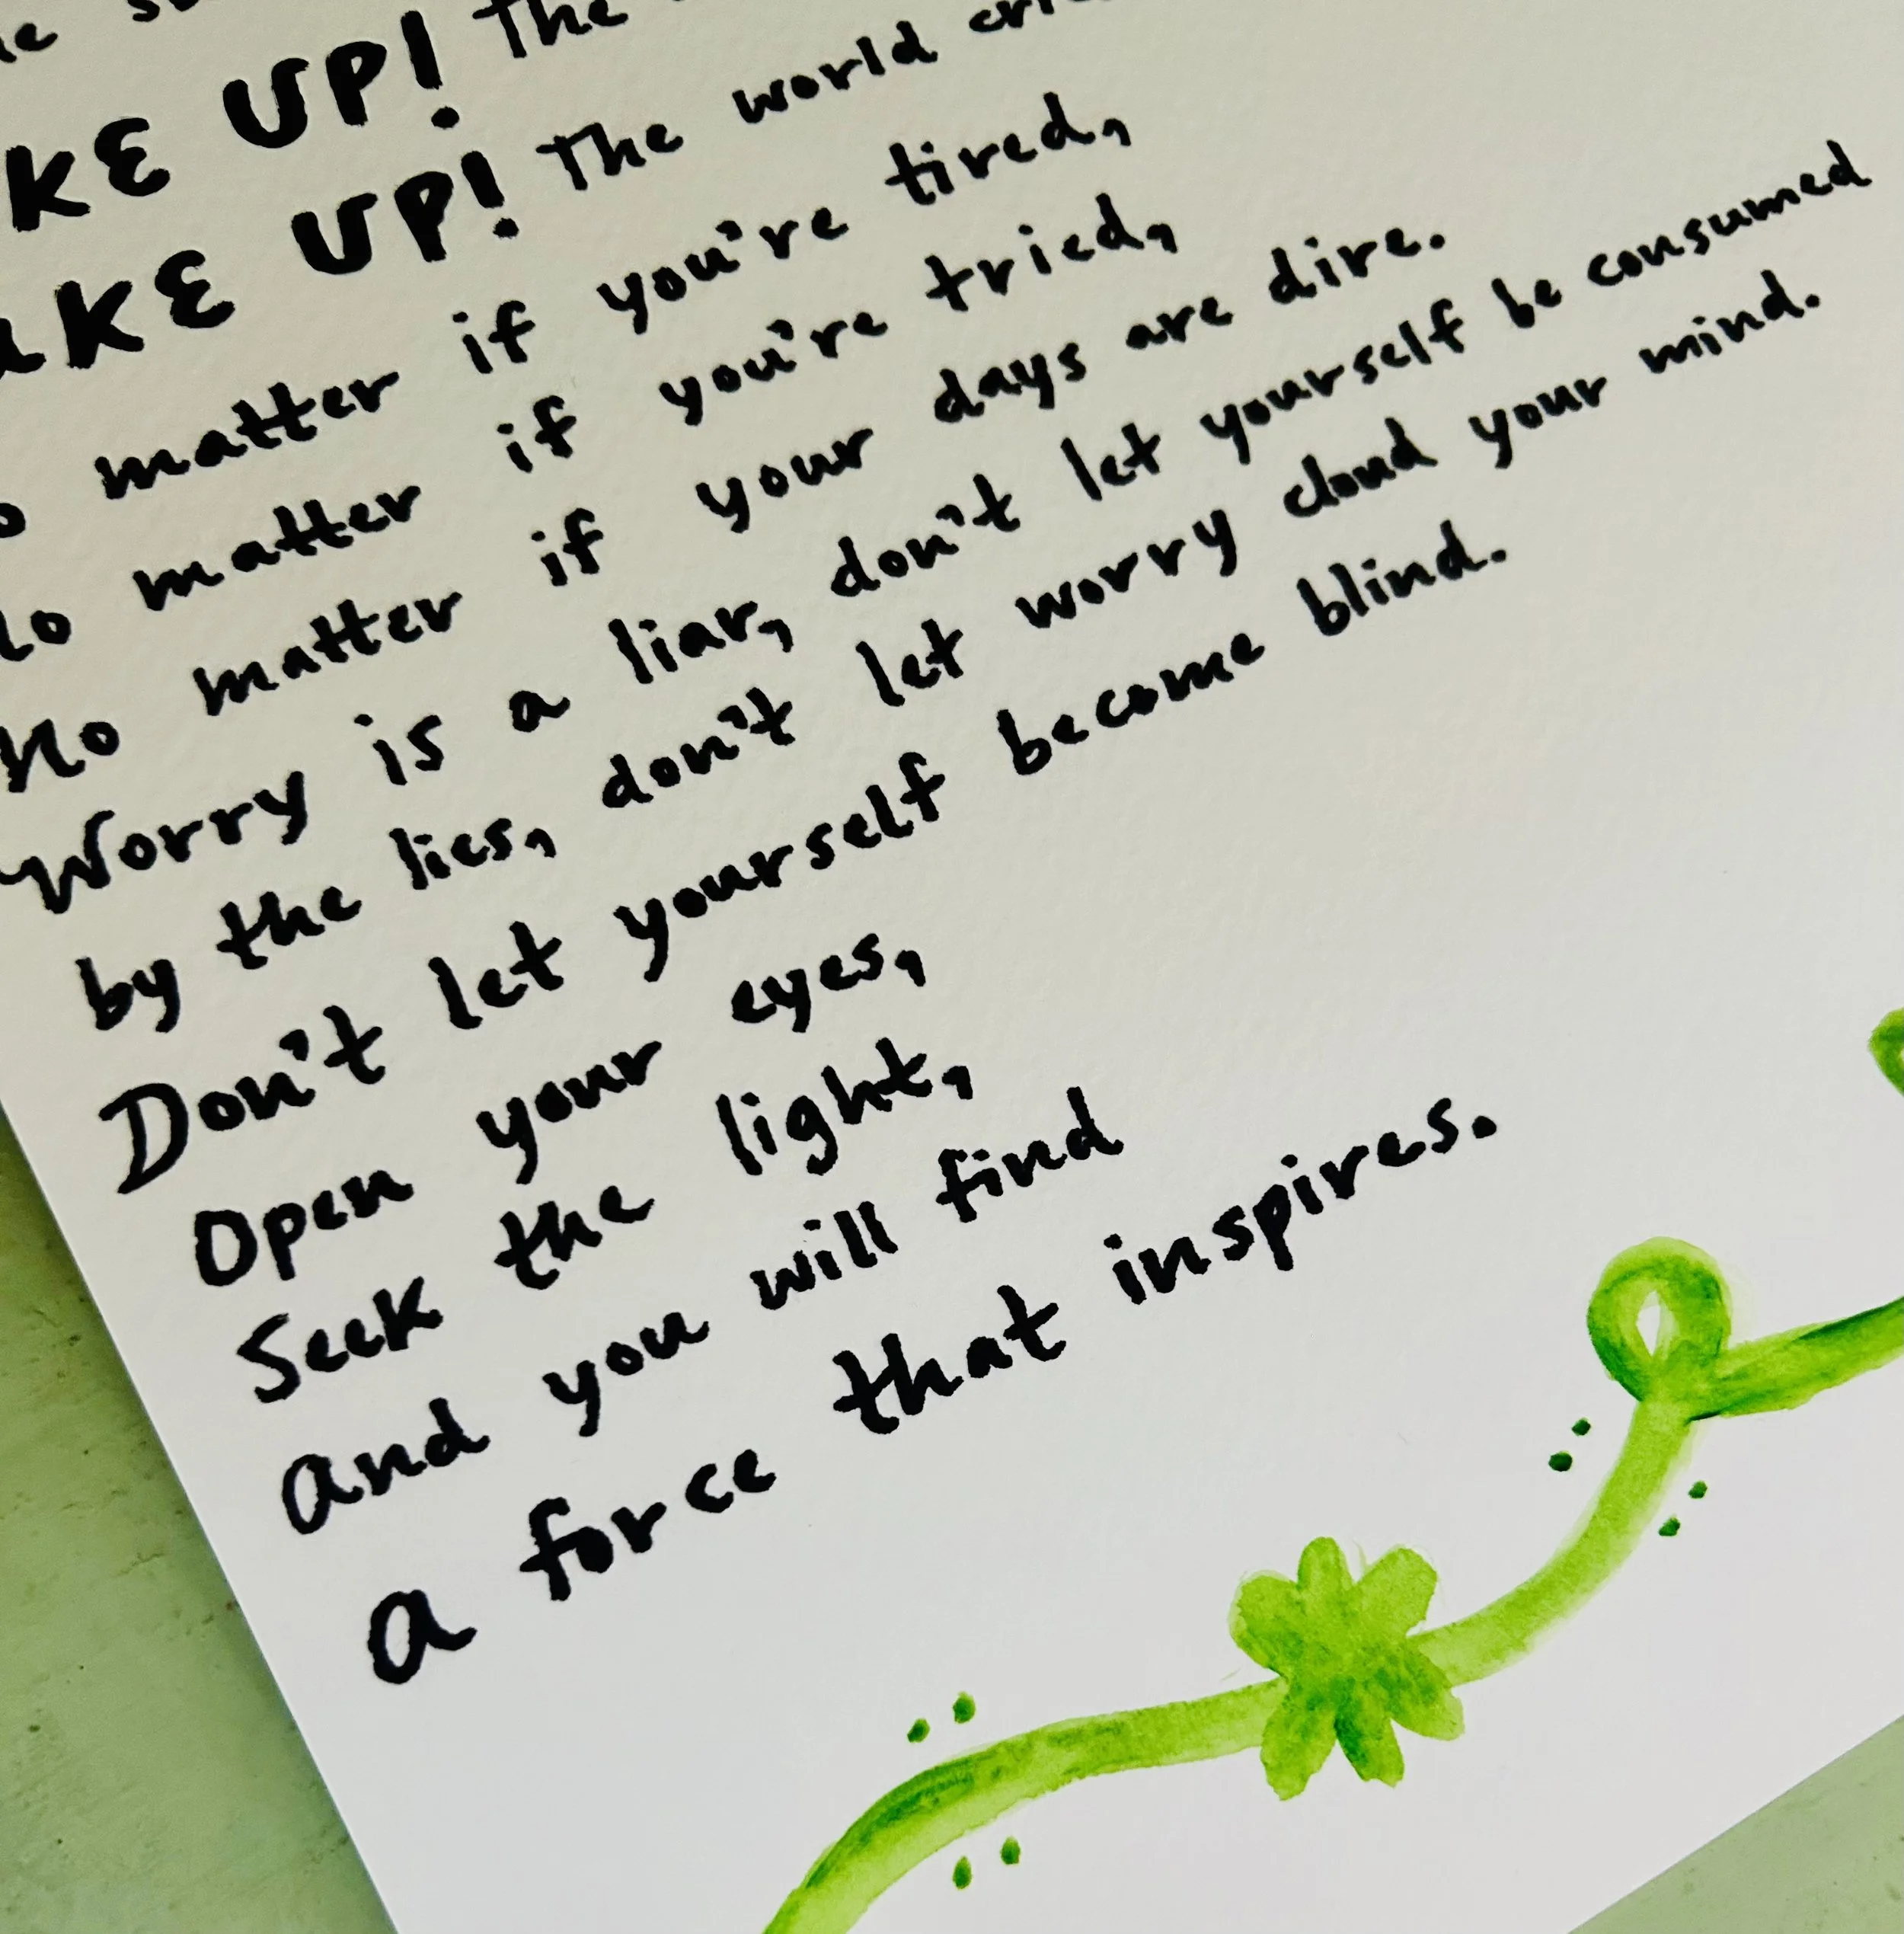 UP! The
UP! The world
matter if you're tired,
matter if you're tried,
No matter if your days are dire.
Worry is a liar, don't let yourself be consumed
by the lies, don't let worry cloud your mind.
Don't let yourself become blind.
Open your eyes,
Seek the light,
and you will find
a force that inspires.